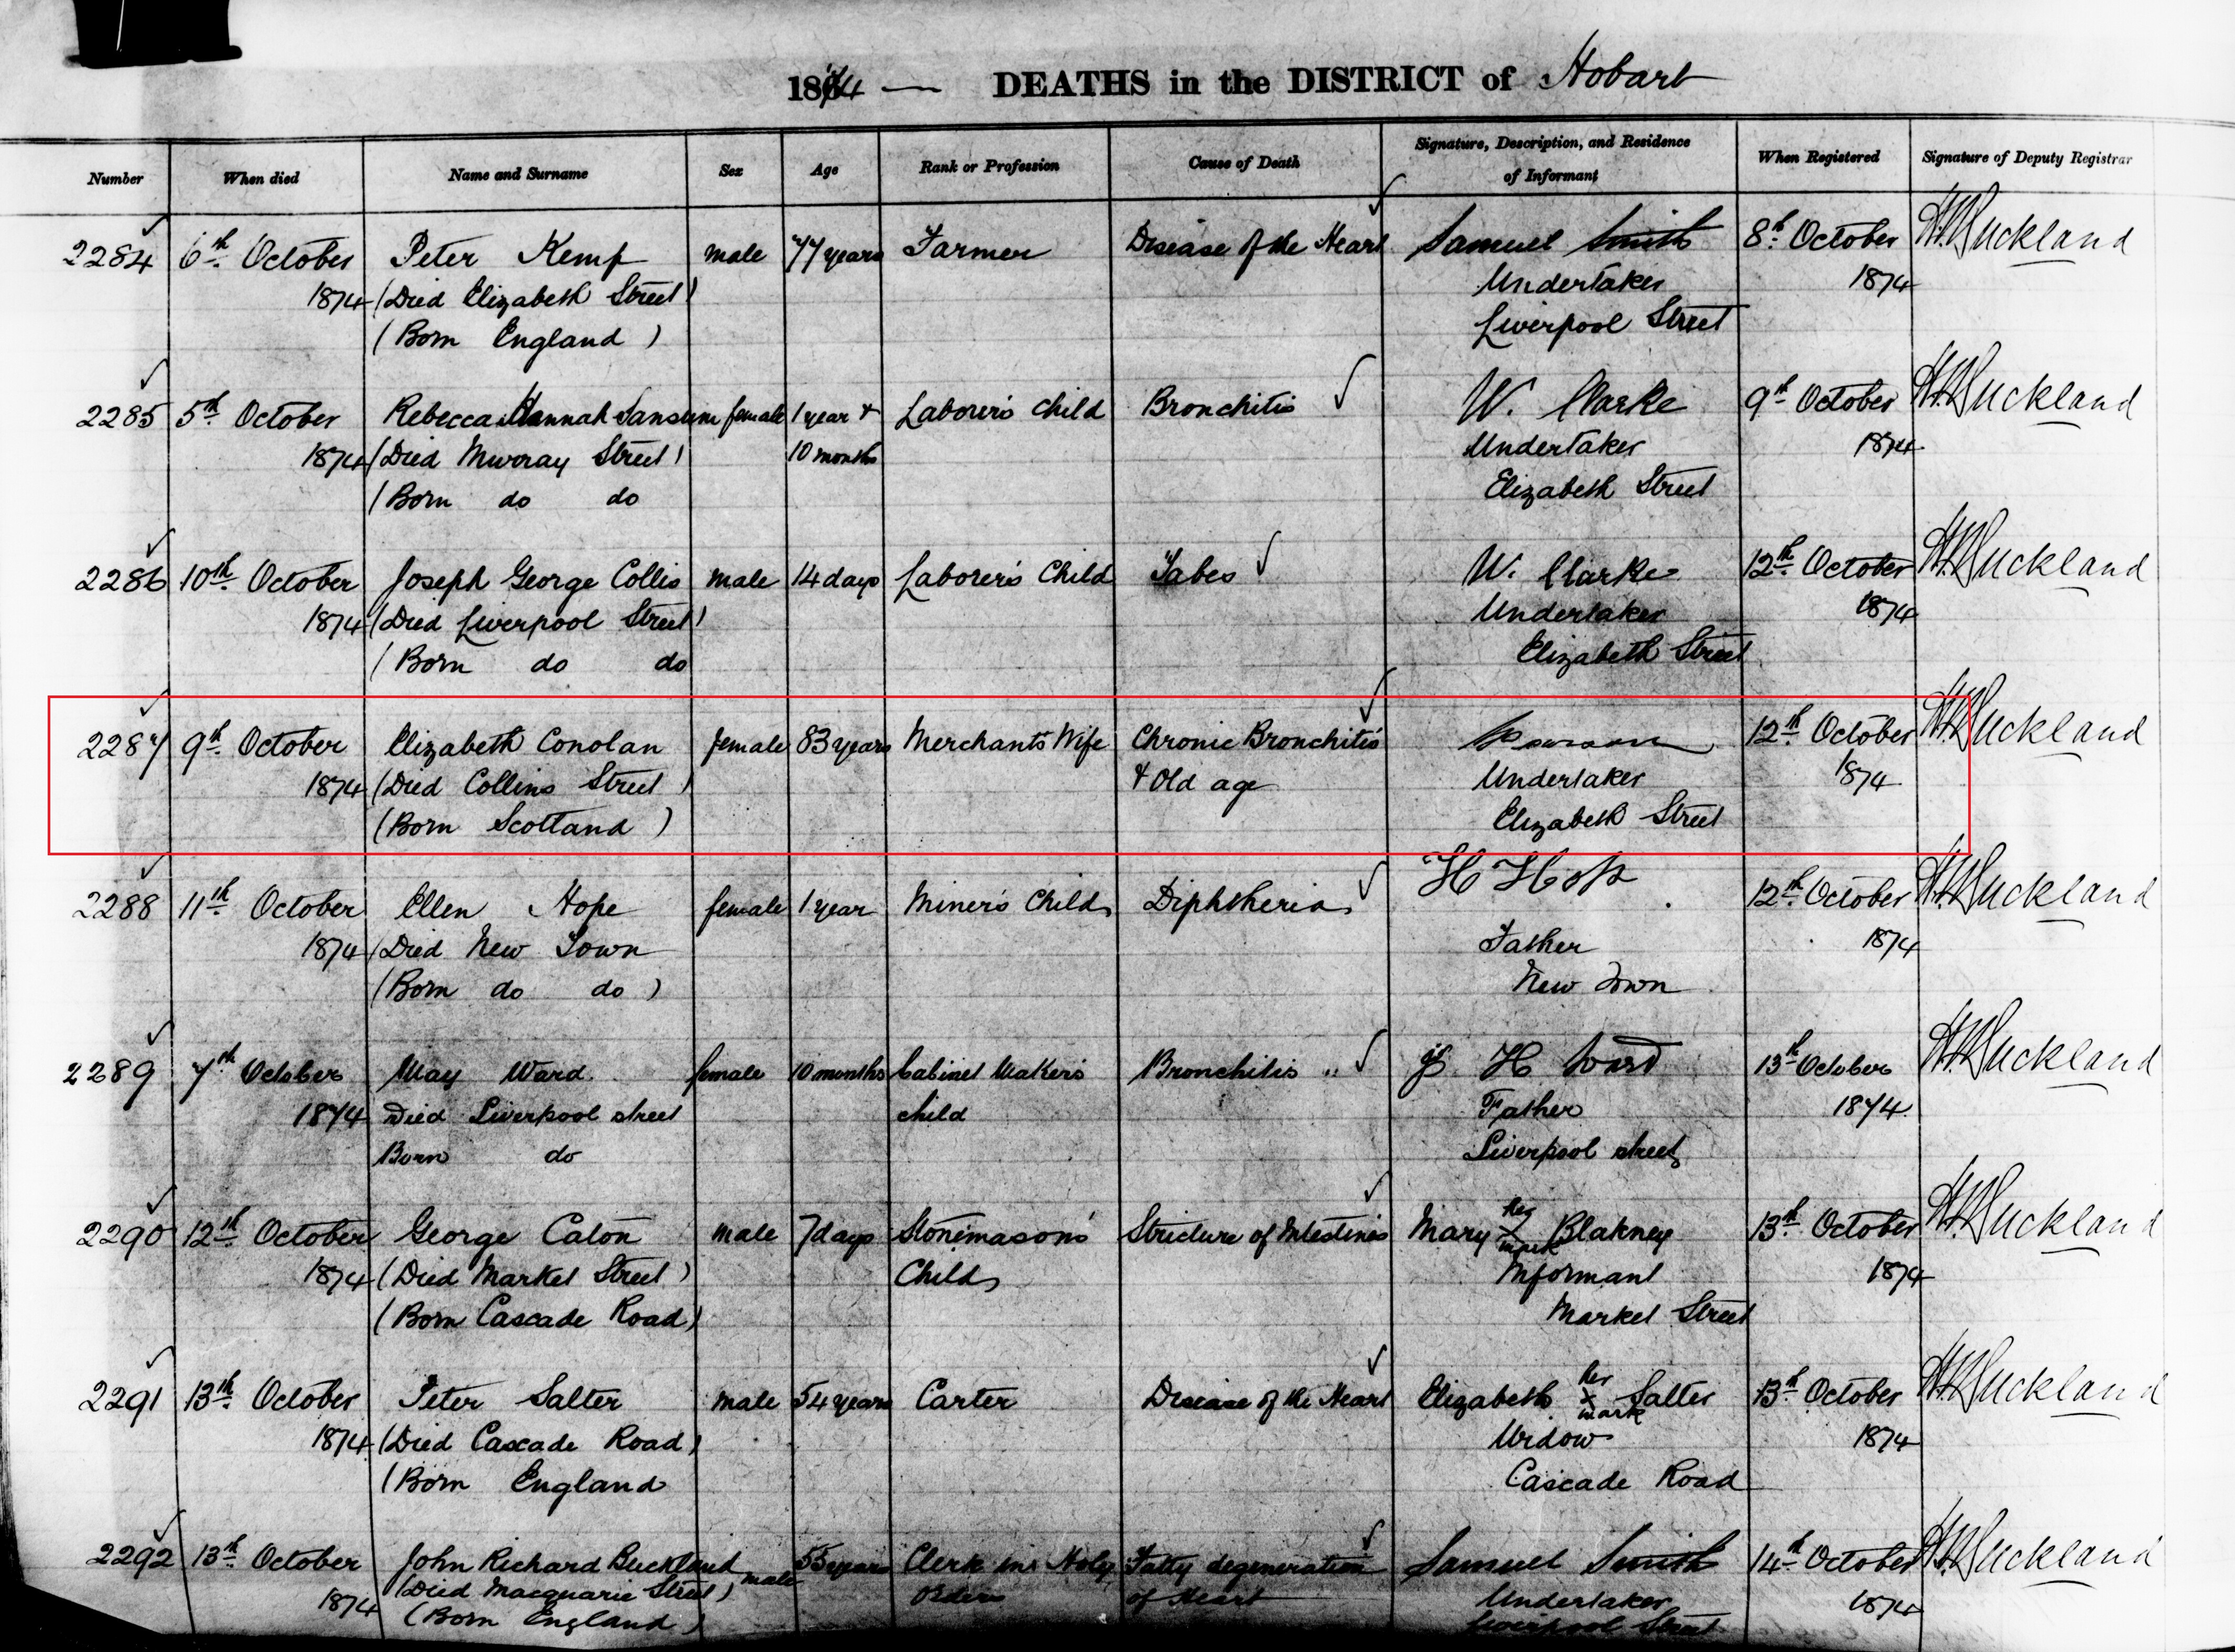 1874 — DEATHS in the DISTRICT of Hobart
Number When died Name and Surname Sex Age Rank or Profession Cause of Death Signature, Description, and Residence of Informant When Registered Signature of Deputy Registrar
2284 6th October Peter Kemp male 77 years Farmer Disease of the Heart Samuel Smith 8th October
1874 (Died Elizabeth Street) Undertaker 1874
(Born England) Liverpool Street
2285 5th October Rebecca Hannah Sansum female 1 year & Laborer's Child Bronchitis W. Clarke 9th October
1874 (Died Murray Street) 10 months Undertaker 1874
(Born do do Elizabeth Street
2286 10th October Joseph George Collis male 14 days Laborer's Child Tabes W. Clarke 12th October
1874 (Died Liverpool Street) Undertaker 1874
(Born do do Elizabeth Street
2287 9th October Elizabeth Conolan female 83 years Merchants Wife Chronic Bronchitis 12th October
1874 (Died Collins Street) & Old age Undertaker 1874
(Born Scotland) Elizabeth Street
2288 11th October Ellen Hope female 1 year Miner's Child Diphtheria H Hope 12th October
1874 (Died New Town Father 1874
(Born do do) New Town
2289 7th October May Ward female 10 months Cabinet Maker's Bronchitis H Ward 13th October
1874 Died Liverpool street child Father 1874
Born do Liverpool street
2290 12th October George Caton male 7 days Stonemason's Stricture of Intestines Mary her x mark Blakney 13th October
1874 (Died Market Street) Child Informant 1874
(Born Cascade Road) Market Street
2291 13th October Peter Salter male 54 years Carter Disease of the Heart Elizabeth her x mark Salter 13th October
1874 (Died Cascade Road) Widow 1874
(Born England Cascade Road
2292 13th October John Richard Buckland male 55 years Clerk in Holy Fatty degeneration Samuel Smith 14th October
1874 (Died Macquarie Street) Orders of Heart Undertaker 1874
(Born England) Liverpool Street